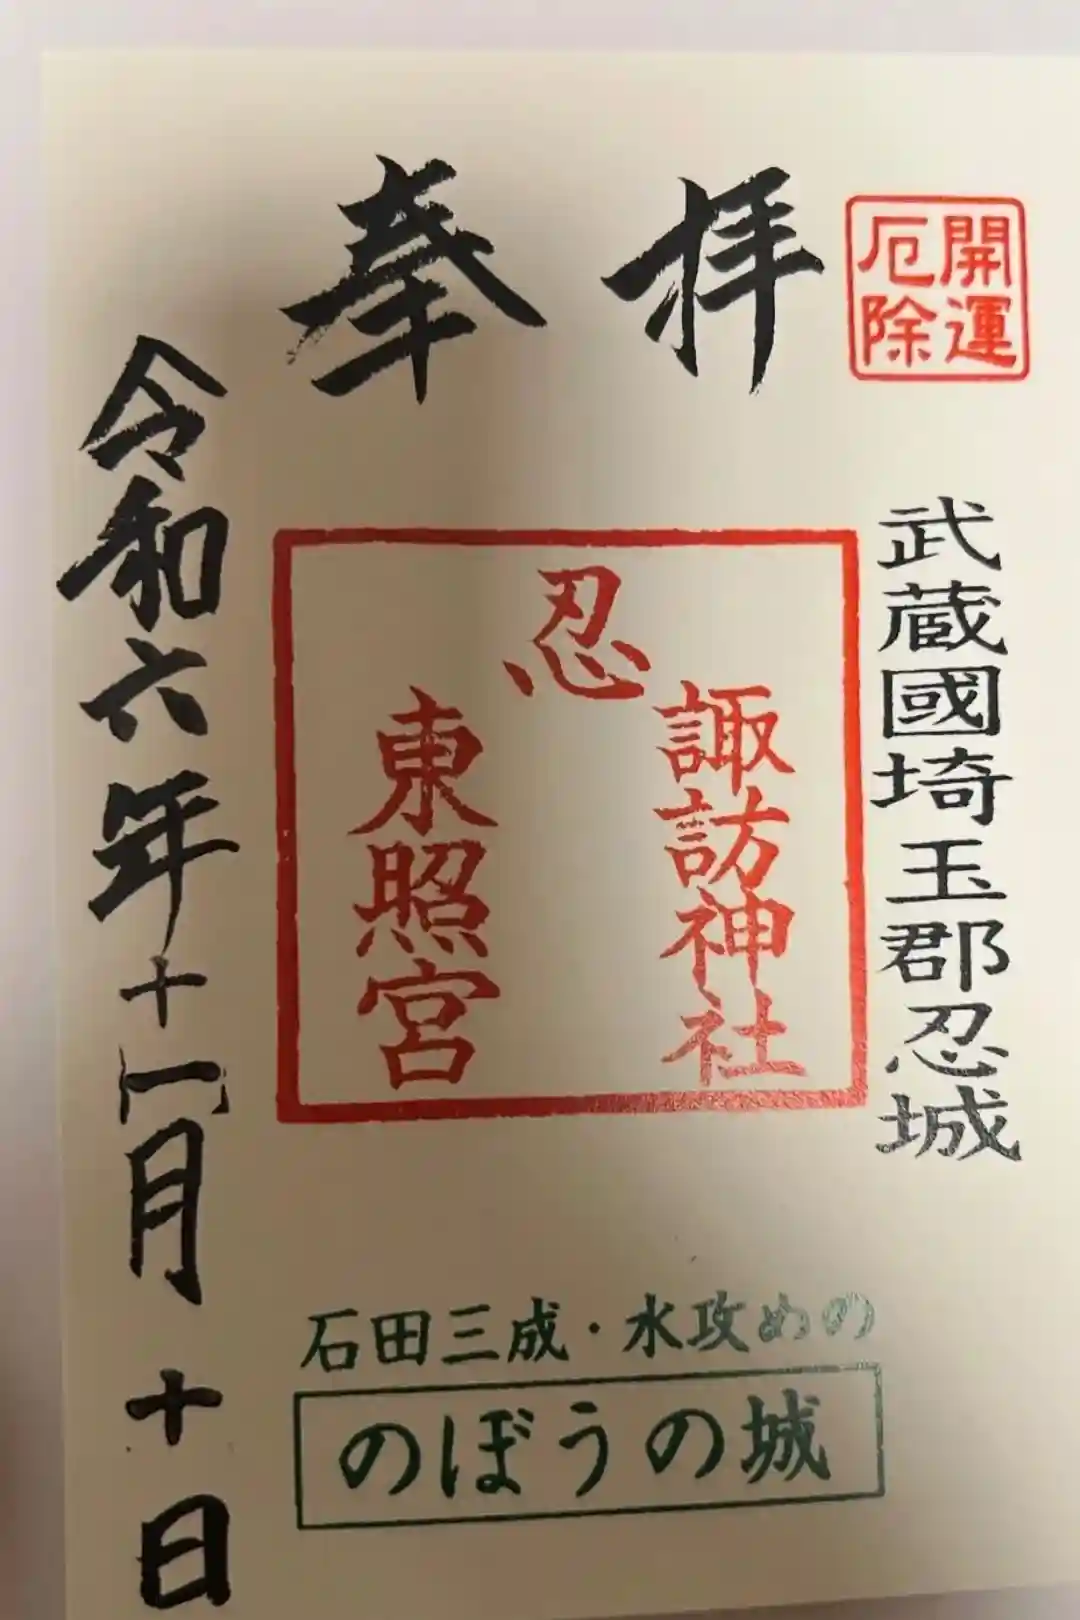 奉拝
開運
厄除
武蔵國埼玉郡忍城
忍
諏訪神社
東照宮
令和六年十一月十日
石田三成・水攻めの
のぼうの城